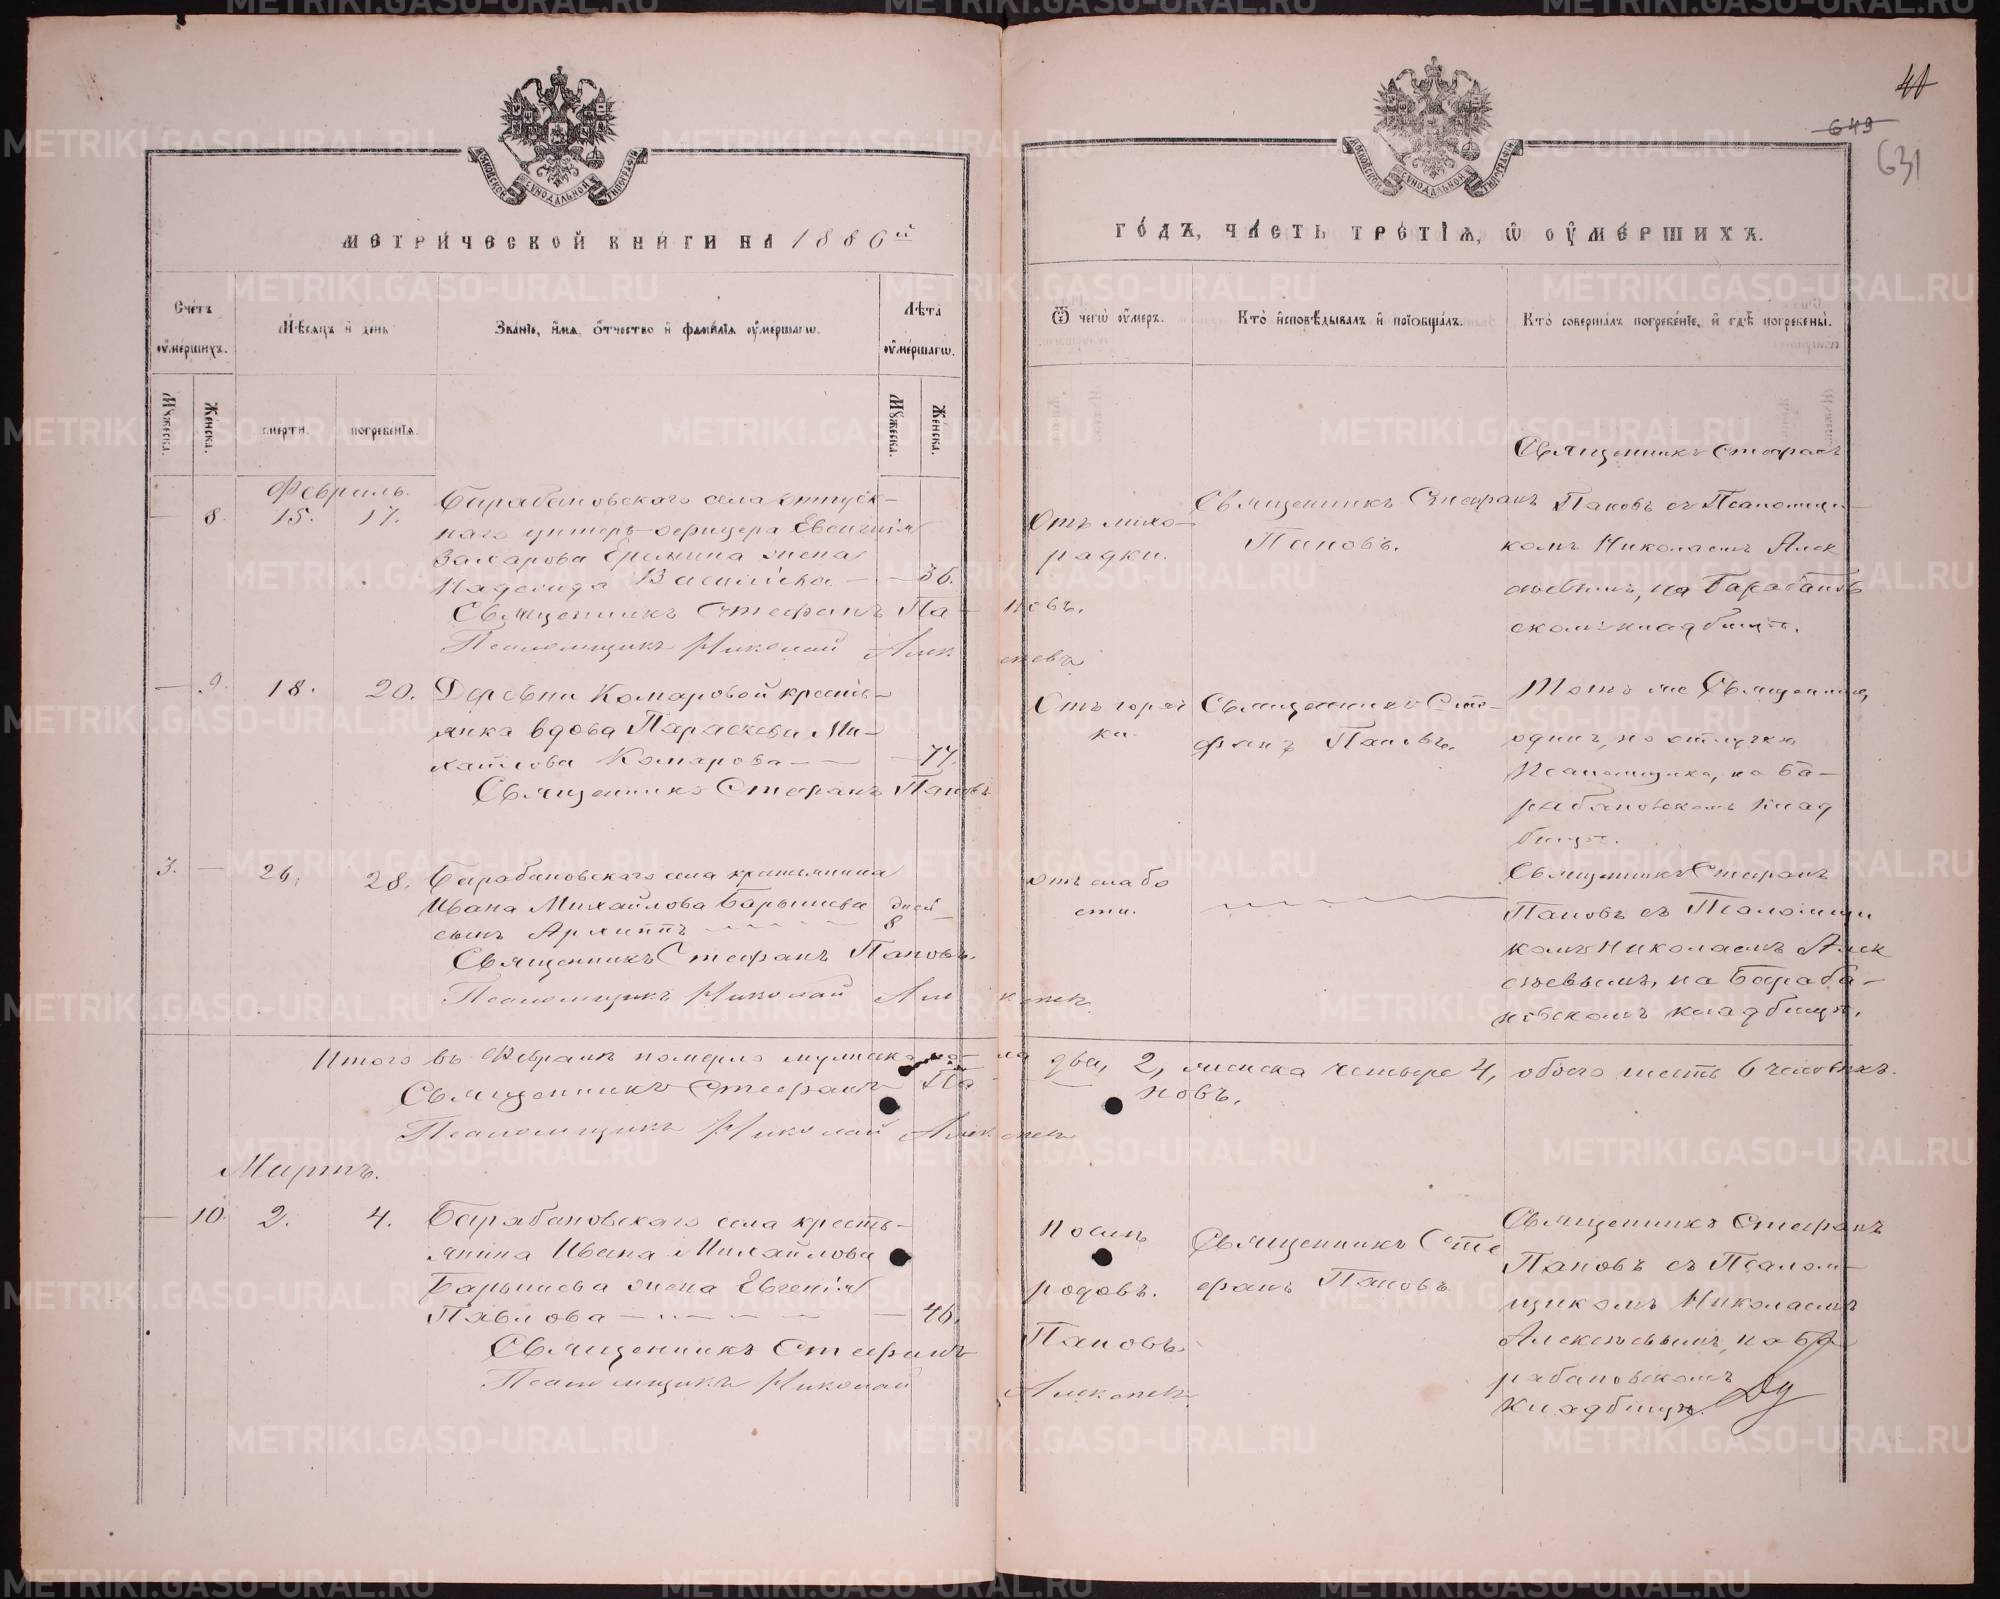 41
649
631
МОСКОВСКОЙ СѴНОДАЛЬНОЙ ТИПОГРАФІИ
МОСКОВСКОЙ СѴНОДАЛЬНОЙ ТИПОГРАФІИ
МЕТРИЧЕСКОЙ КНИГИ НА 1886й
ГОДЪ, ЧАСТЬ ТРЕТІЯ, Ѡ ОУМЕРШИХЪ.
Счетъ оумершихъ.
Мѣсяцъ и день
Званіе, имя, отчество и фамилія оумершагѡ.
Лѣта оумершагѡ.
Ѿ чегѡ оумеръ.
Кто исповѣдывалъ и пріобщалъ.
Кто совершалъ погребеніе, и гдѣ погребены.
Мужеска.
Женска.
смерти.
погребенія.
Мужеска.
Женска.
Февраль.
8. 15. 17.
Барабановскаго села отпуск-
наго унтеръ-офицера Евсигнія
Захарова жена
Надежда Васильева — — 36.
Священникъ Стефанъ Пановъ.
Псаломщикъ Николай Алексѣевъ
Отъ лихо-
радки.
Священникъ Стефанъ
Пановъ.
Священникъ Стефанъ
Пановъ съ Псаломщи-
комъ Николаемъ Алек
сѣевымъ, на Барабанов
скомъ кладбищѣ.
— 9. 18. 20.
Деревни Комаровой кресть-
янка вдова Параскева Ми-
хайлова Комарова — — 77.
Священникъ Стефанъ Пановъ
Отъ горяч
ки.
Священникъ Сте-
фанъ Пановъ.
Тотъ же Священникъ,
одинъ, по отлучкѣ
Псаломщика, на Ба-
рабановскомъ клад
бищѣ.
3. — 26. 28.
Барабановскаго села крестьянина
Ивана Михайлова Барышева дней
сынъ Архиппъ 8 —
Священникъ Стефанъ Пановъ.
Псаломщикъ Николай Алексѣевъ
отъ слабо
сти.
Священникъ Стефанъ
Пановъ съ Псаломщи
комъ Николаемъ Алек
сѣевымъ, на Бараба-
новскомъ кладбищѣ.
Итого въ Февралѣ померло мужска пола два, 2, женска четыре 4, обоего шесть 6 человѣкъ.
Священникъ Стефанъ Пановъ.
Псаломщикъ Николай Алексѣевъ
Мартъ.
— 10. 2. 4.
Барабановскаго села кресть-
янина Ивана Михайлова
Барышева жена Евгенія
Павлова — — 46.
Священникъ Стефанъ Пановъ.
Псаломщикъ Николай Алексѣевъ
Послѣ
родовъ.
Священникъ Сте
фанъ Пановъ
Священникъ Стефанъ
Пановъ съ Псалом-
щикомъ Николаемъ
Алексѣевымъ, на Ба
рабановскомъ
кладбищѣ.
METRIKI.GASO-URAL.RU